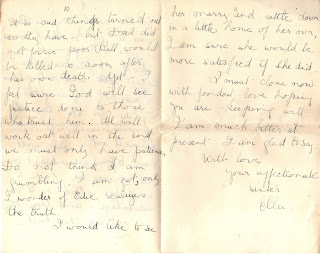 10
It is sad things turned out
as they have. but Dad did
not poor Bill would
be killed so soon after
his own death. I
feel sure God will see
justice done to those
who trust him. All will
work out well in the end
we must only have patience.
Do not think I am
grumbling I am not, only
I wonder if Edie realises
the truth.
I would like to see
her marry "and settle" down
in a little home of her own,
I am sure she would be
more satisfied if she did
I must close now
with fondest love hoping
you are keeping well
I am much better at
present I am glad to say
With love
your affectionate
sister